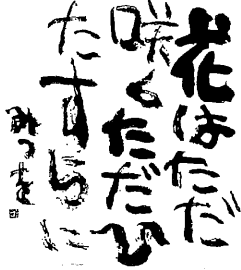 花はただ
咲くただひ
たすらに
みつを